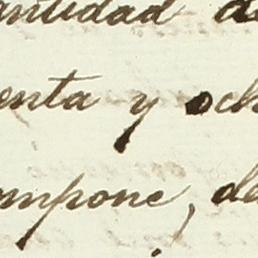 antidad de
enta y och
ompone, da